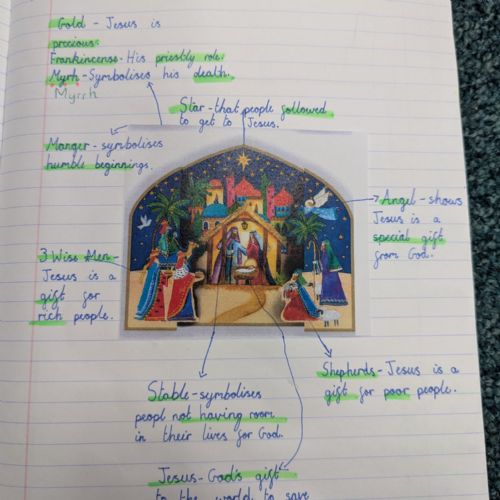 Gold - Jesus is
precious.
Frankincense - His priestly role.
Myrh - Symbolises his death.
Myrrh
Star - that people followed
to get to Jesus.
Manger - symbolises
humble beginnings.
Angel - shows
Jesus is a
special gift
from God.
3 Wise Men
Jesus is a
gift for
rich people.
Shepherds - Jesus is a
gift for poor people.
Stable - symbolises
peopl not having room
in their lives for God.
Jesus - God's gift
to the world, to save